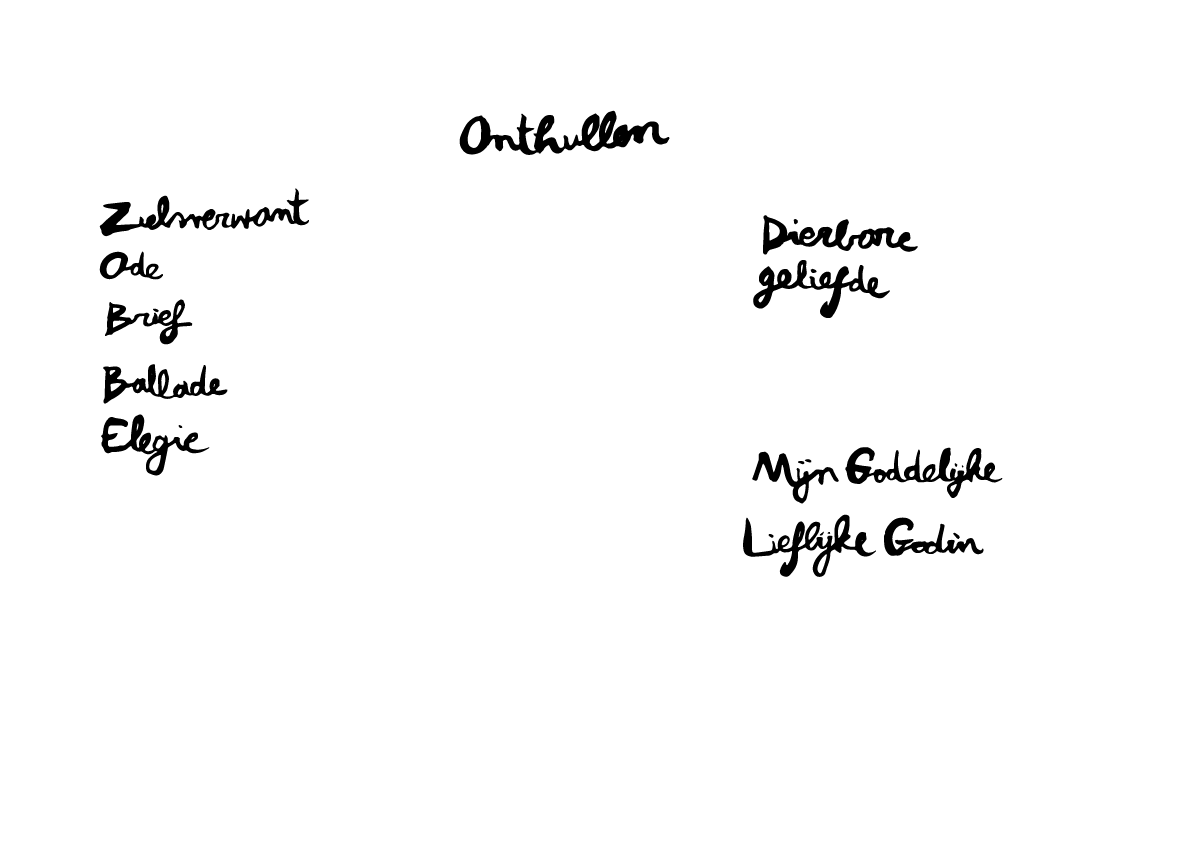 Onthullen
Zielsverwant
Ode
Brief
Ballade
Elegie
Dierbare
geliefde
Mijn Goddelijke
Lieflijke Godin